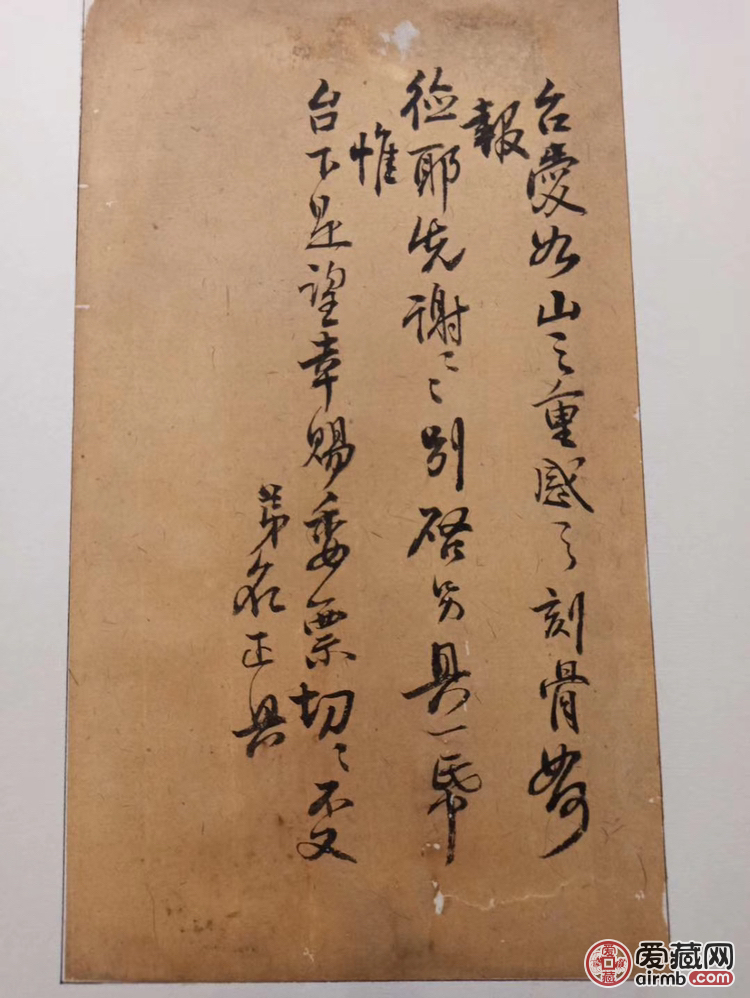 台愛如山之重感之刻骨如何
報
德耶先謝謝別啓另具一帋
惟
台下是望幸賜委票切切不文
弟名正具
爱藏网
airmb.com